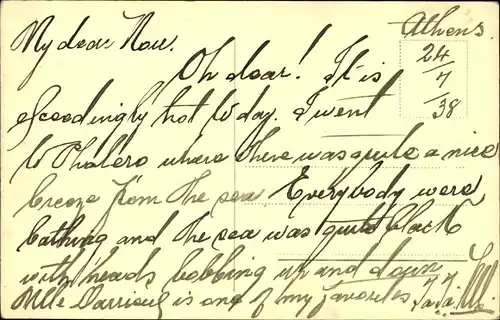 Athens.
24/7/38
My dear Nan.
Oh dear! It is
exceedingly hot to day. I went
to Phalero where there was quite a nice
breeze from the sea, Everybody were
bathing and the sea was quite black
with heads bobbing up and down
Mlle Darrieux is one of my favorites